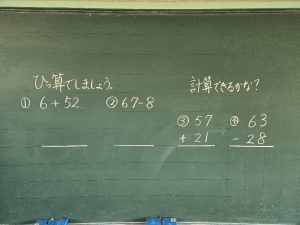 ひっ算でしましょう。
① 6+52 ② 67-8
計算できるかな?
③ 57 ④ 63
+ 21 - 28